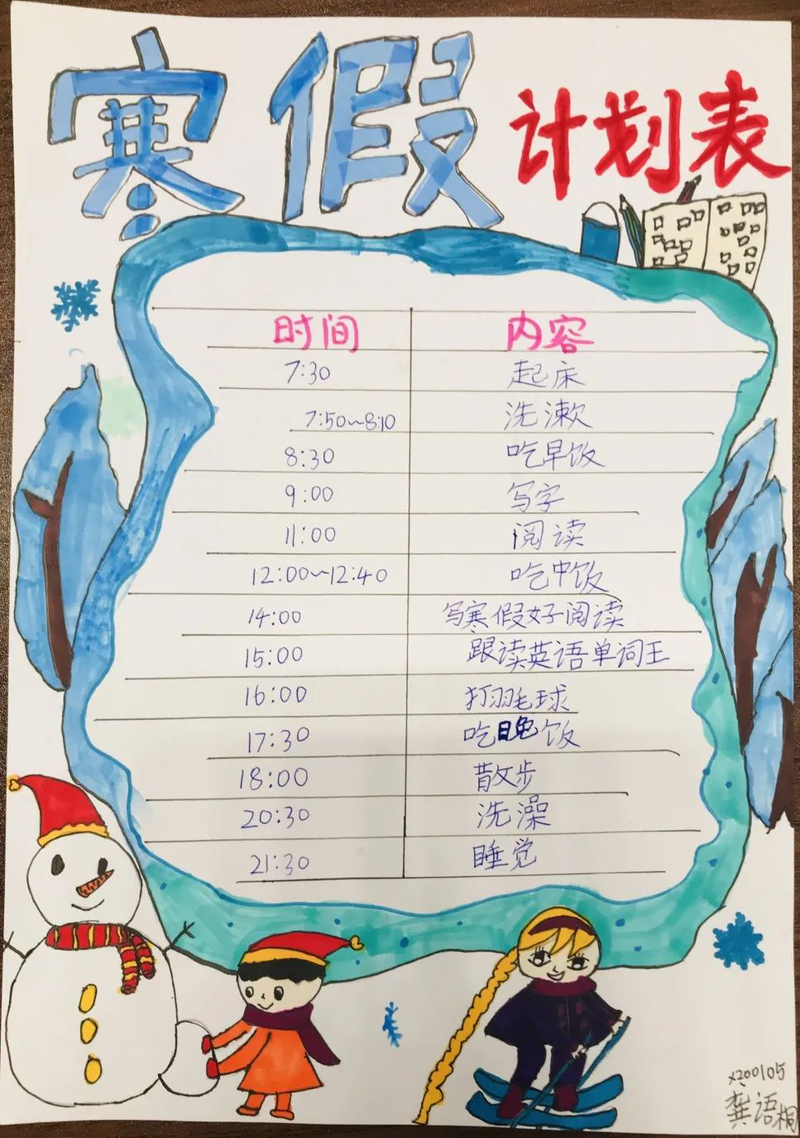 寒假 计划表
时间 内容
7:30 起床
7:50~8:10 洗漱
8:30 吃早饭
9:00 写字
11:00 阅读
12:00~12:40 吃中饭
14:00 写寒假好阅读
15:00 跟读英语单词王
16:00 打羽毛球
17:30 吃晚饭
18:00 散步
20:30 洗澡
21:30 睡觉
x200105
龚语桐